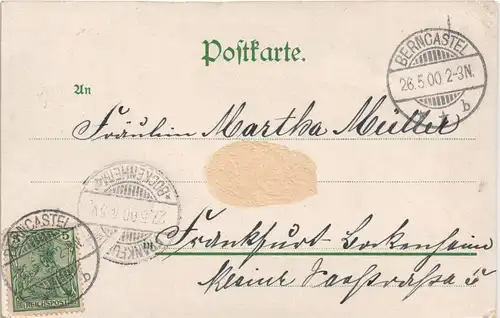 Postkarte.
BERNCASTEL
26.5.00.2-3N.
b
An
Fräulein Martha Müller
BOCKENHEIM
27.5.00.
FRANKFU
in
Frankfurt-Bockenheim
BERNCASTEL
5
REICHSPOST
b